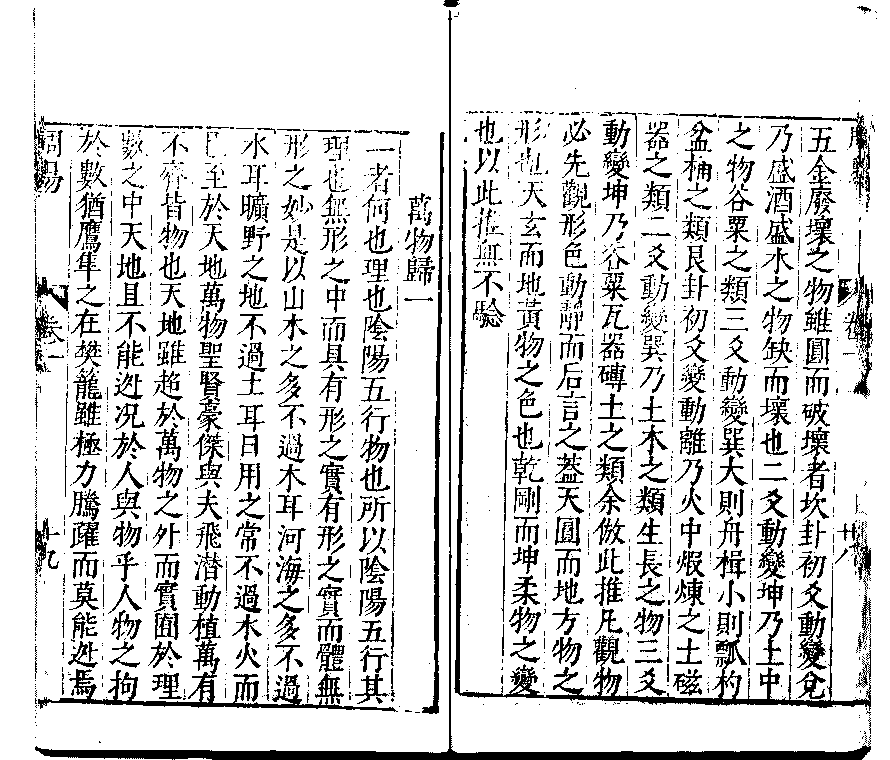 五金廢壞之物雖圓而破壞者坎卦初爻動變兌
乃盛酒盛水之物缺而壞也二爻動變坤乃土中
之物谷粟之類三爻動變巽大則舟楫小則瓢杓
盆桶之類艮卦初爻變動離乃火中煆煉之土磁
器之類二爻動變巽乃土木之類生長之物三爻
動變坤乃谷粟瓦器磚土之類余倣此推凡觀物
必先觀形色動靜而后言之蓋天圓而地方物之
形也天玄而地黃物之色也乾剛而坤柔物之變
也以此推無不驗
卷一
萬物歸一
一者何也理也陰陽五行物也所以陰陽五行其
理也無形之中而具有形之實有形之實而體無
形之妙是以山木之多不過木耳河海之多不過
水耳曠野之地不過土耳日用之常不過水火而
已至於天地萬物聖賢豪傑與夫飛潛動植萬有
不齊皆物也天地雖超於萬物之外而實囿於理
數之中天地且不能迯况於人與物乎人物之拘
於數猶鷹隼之在樊籠雖極力騰躍而莫能迯焉
卷一
十九